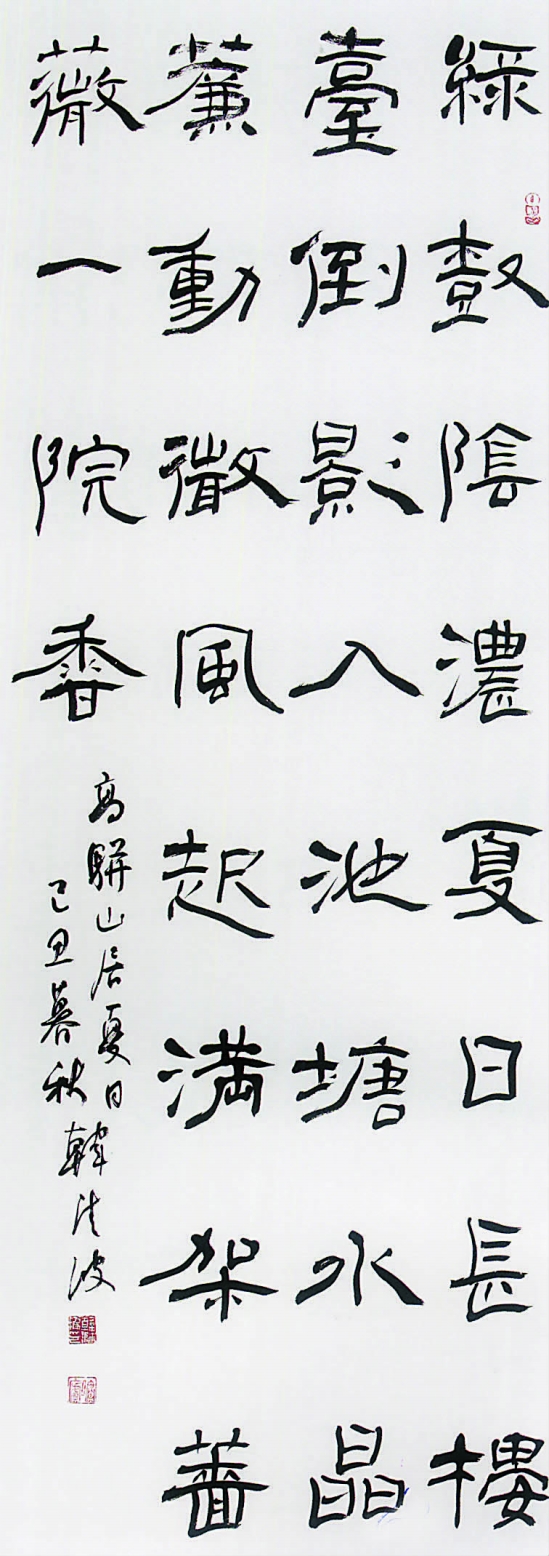 綠樹陰濃夏日長樓
臺倒影入池塘水晶
簾動微風起滿架薔
薇一院香
高駢山居夏日
己丑暮秋 韓清波